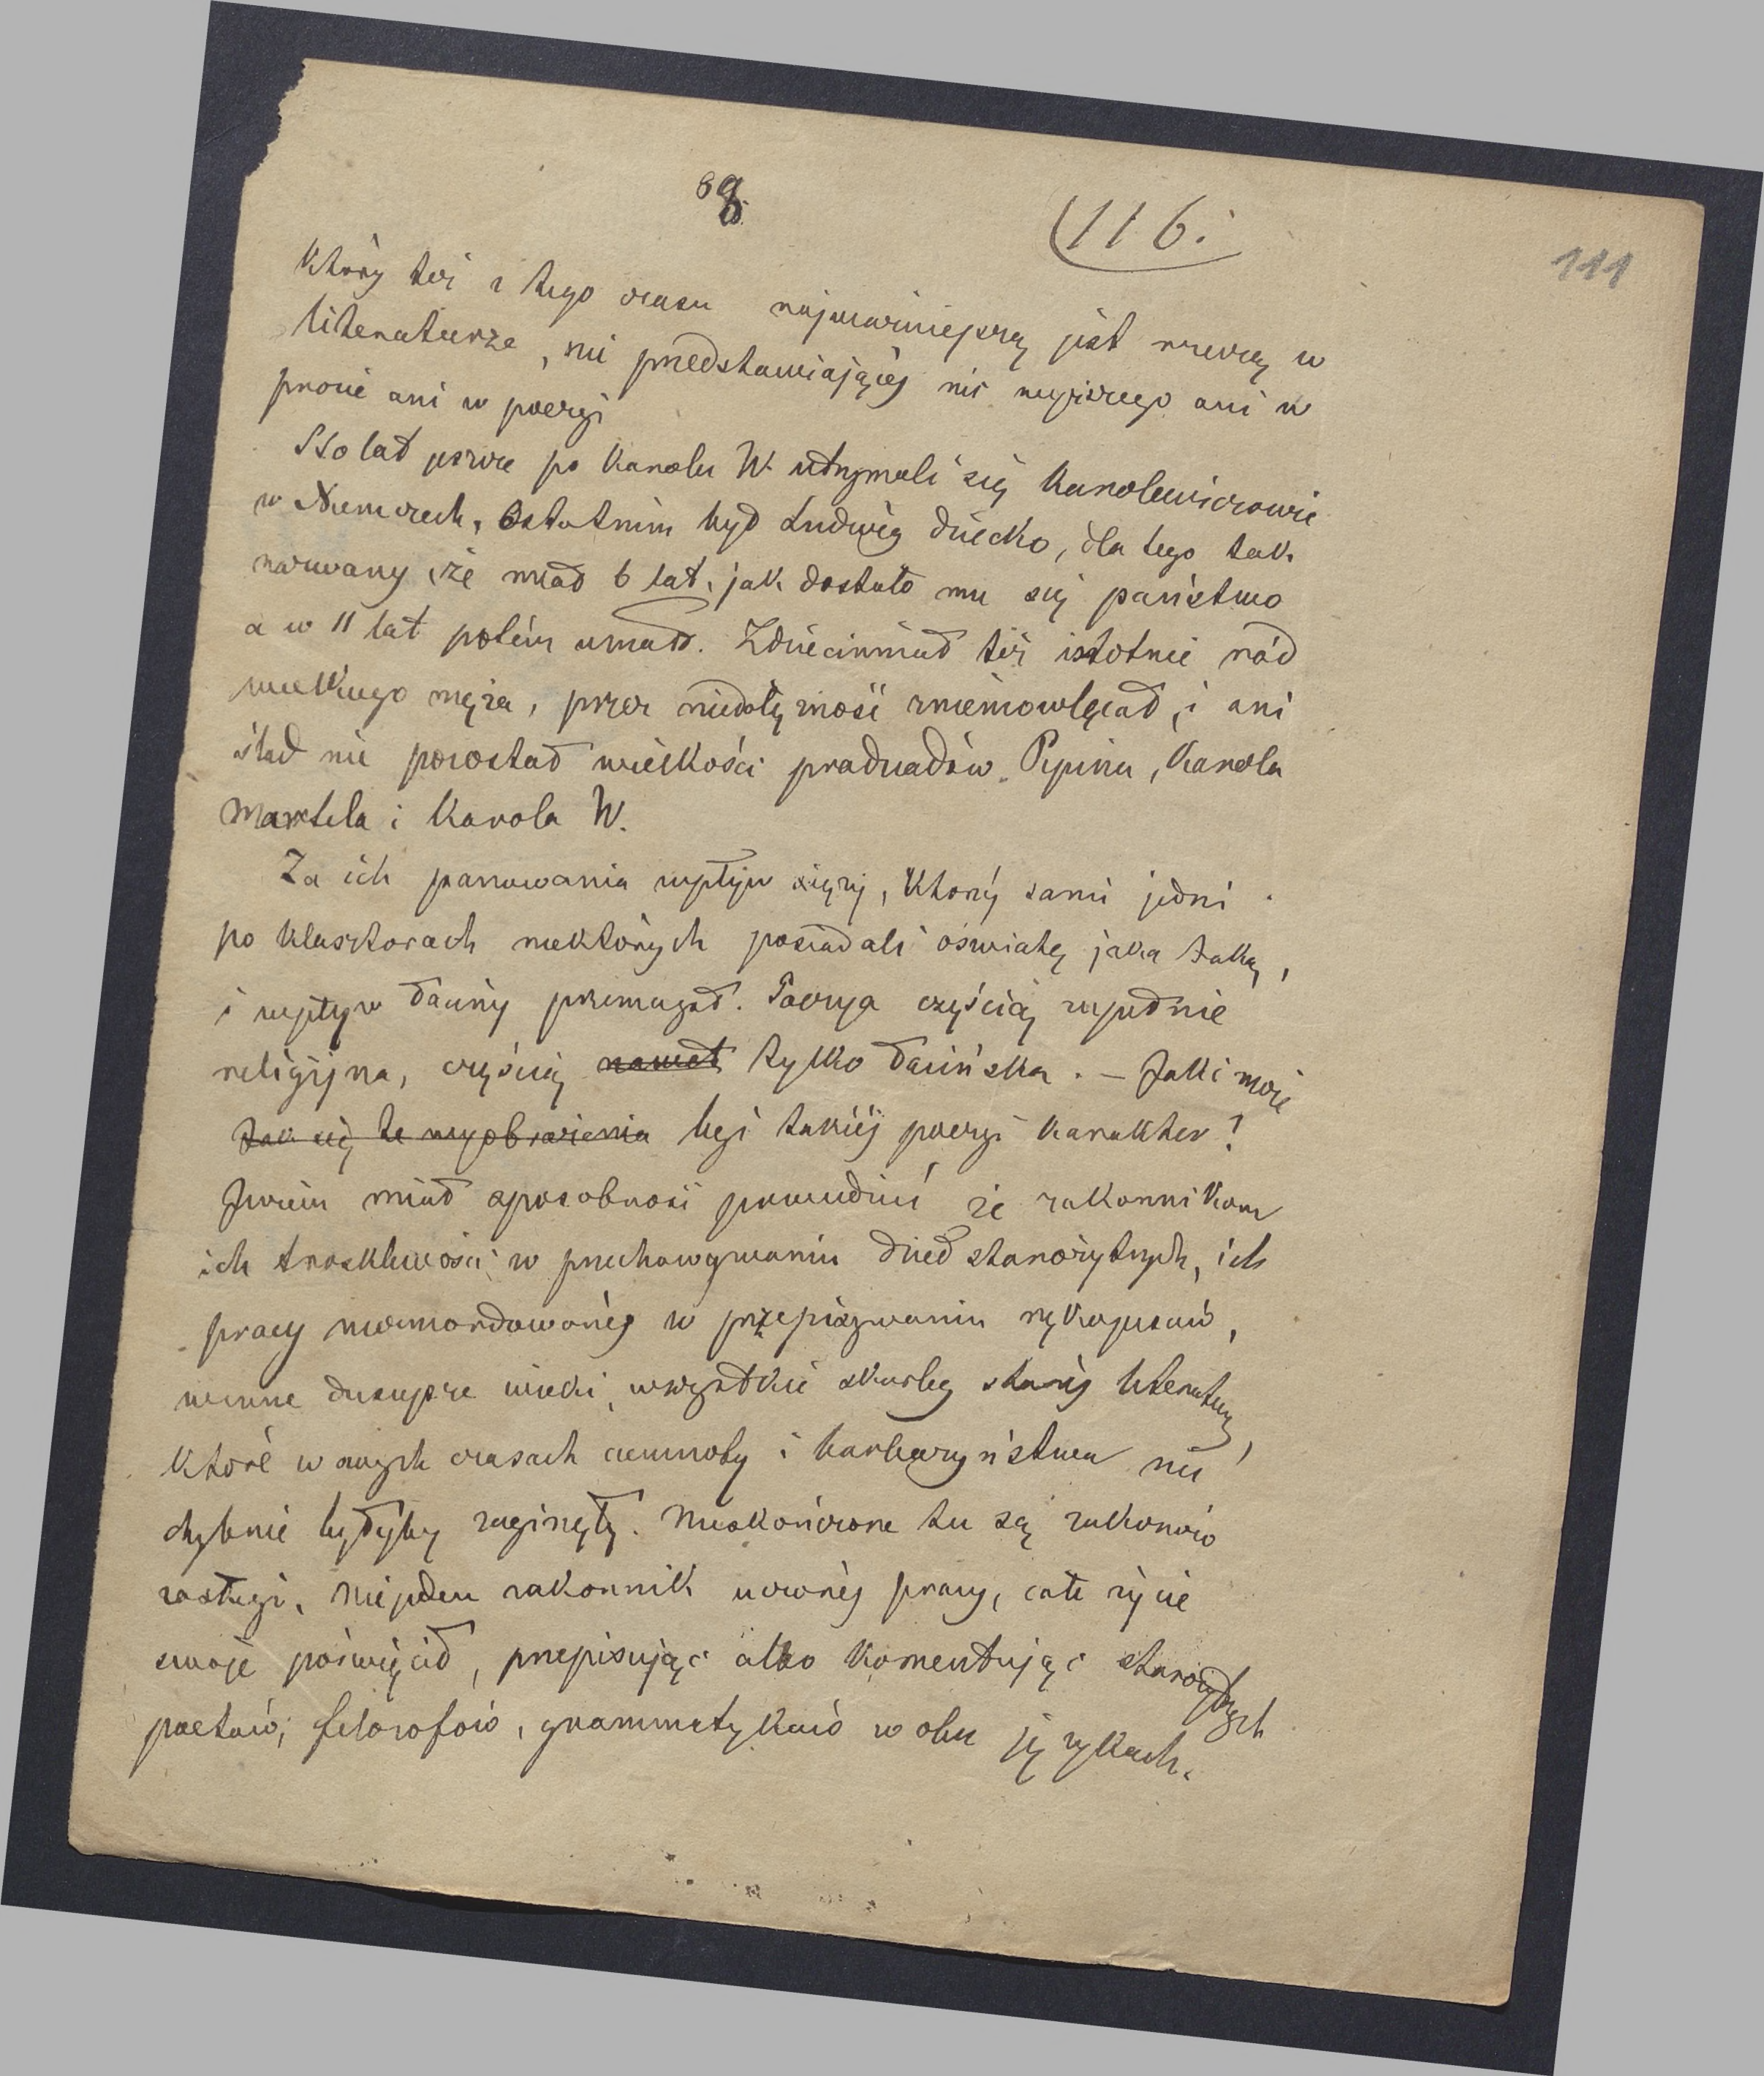 8
(116.
111
który też z tego czasu najważniejszą jest rzeczą w
literaturze, nie przedstawiającéj nic wyższego ani w
prozie ani w poezyi
Sto lat jeszcze po Karolu W. utrzymali się Karolewiczowie
w Niemczech. Ostatnim był Ludwig dziecko, dla tego tak
nazwany że miał 6 lat, jak dostało mu się państwo
a w 11 lat potém umarł. Zdziecinniał też istotnie ród
wielkiego męża, przez niedołężność zniemowlęciał, i ani
ślad nie pozostał wielkości pradziadów Pipina, Karola
Martela i Karola W.
Za ich panowania wpływ księży, którzy sami jedni
po klasztorach niektórych posiadali oświatę jaką taką,
i wpływ łaciny przemagał. Poezya częścią zupełnie
religijna, częścią nawet tylko łacińska. – Jakiż może
Jak się te wyobrażenia być takiéj poezyi karakter?
Jużem miał sposobność powiedzieć że zakonnikom
ich troskliwości w przechowywaniu dzieł starożytnych, ich
pracy niezmordowanéj w przepisywaniu rękopisów,
winne dzisiejsze wieki, wszystkie skarby staréj literatury,
które w owych czasach ciemnoty i barbarzyństwa nie
chybnie byłyby zaginęły. Nieskończone tu są zakonów
zasługi. Niejeden zakonnik uczonéj pracy, całe życie
swoje poświęcił, przepisując albo komentując starożytnych
poetów, filozofów, grammatyków w obu językach.